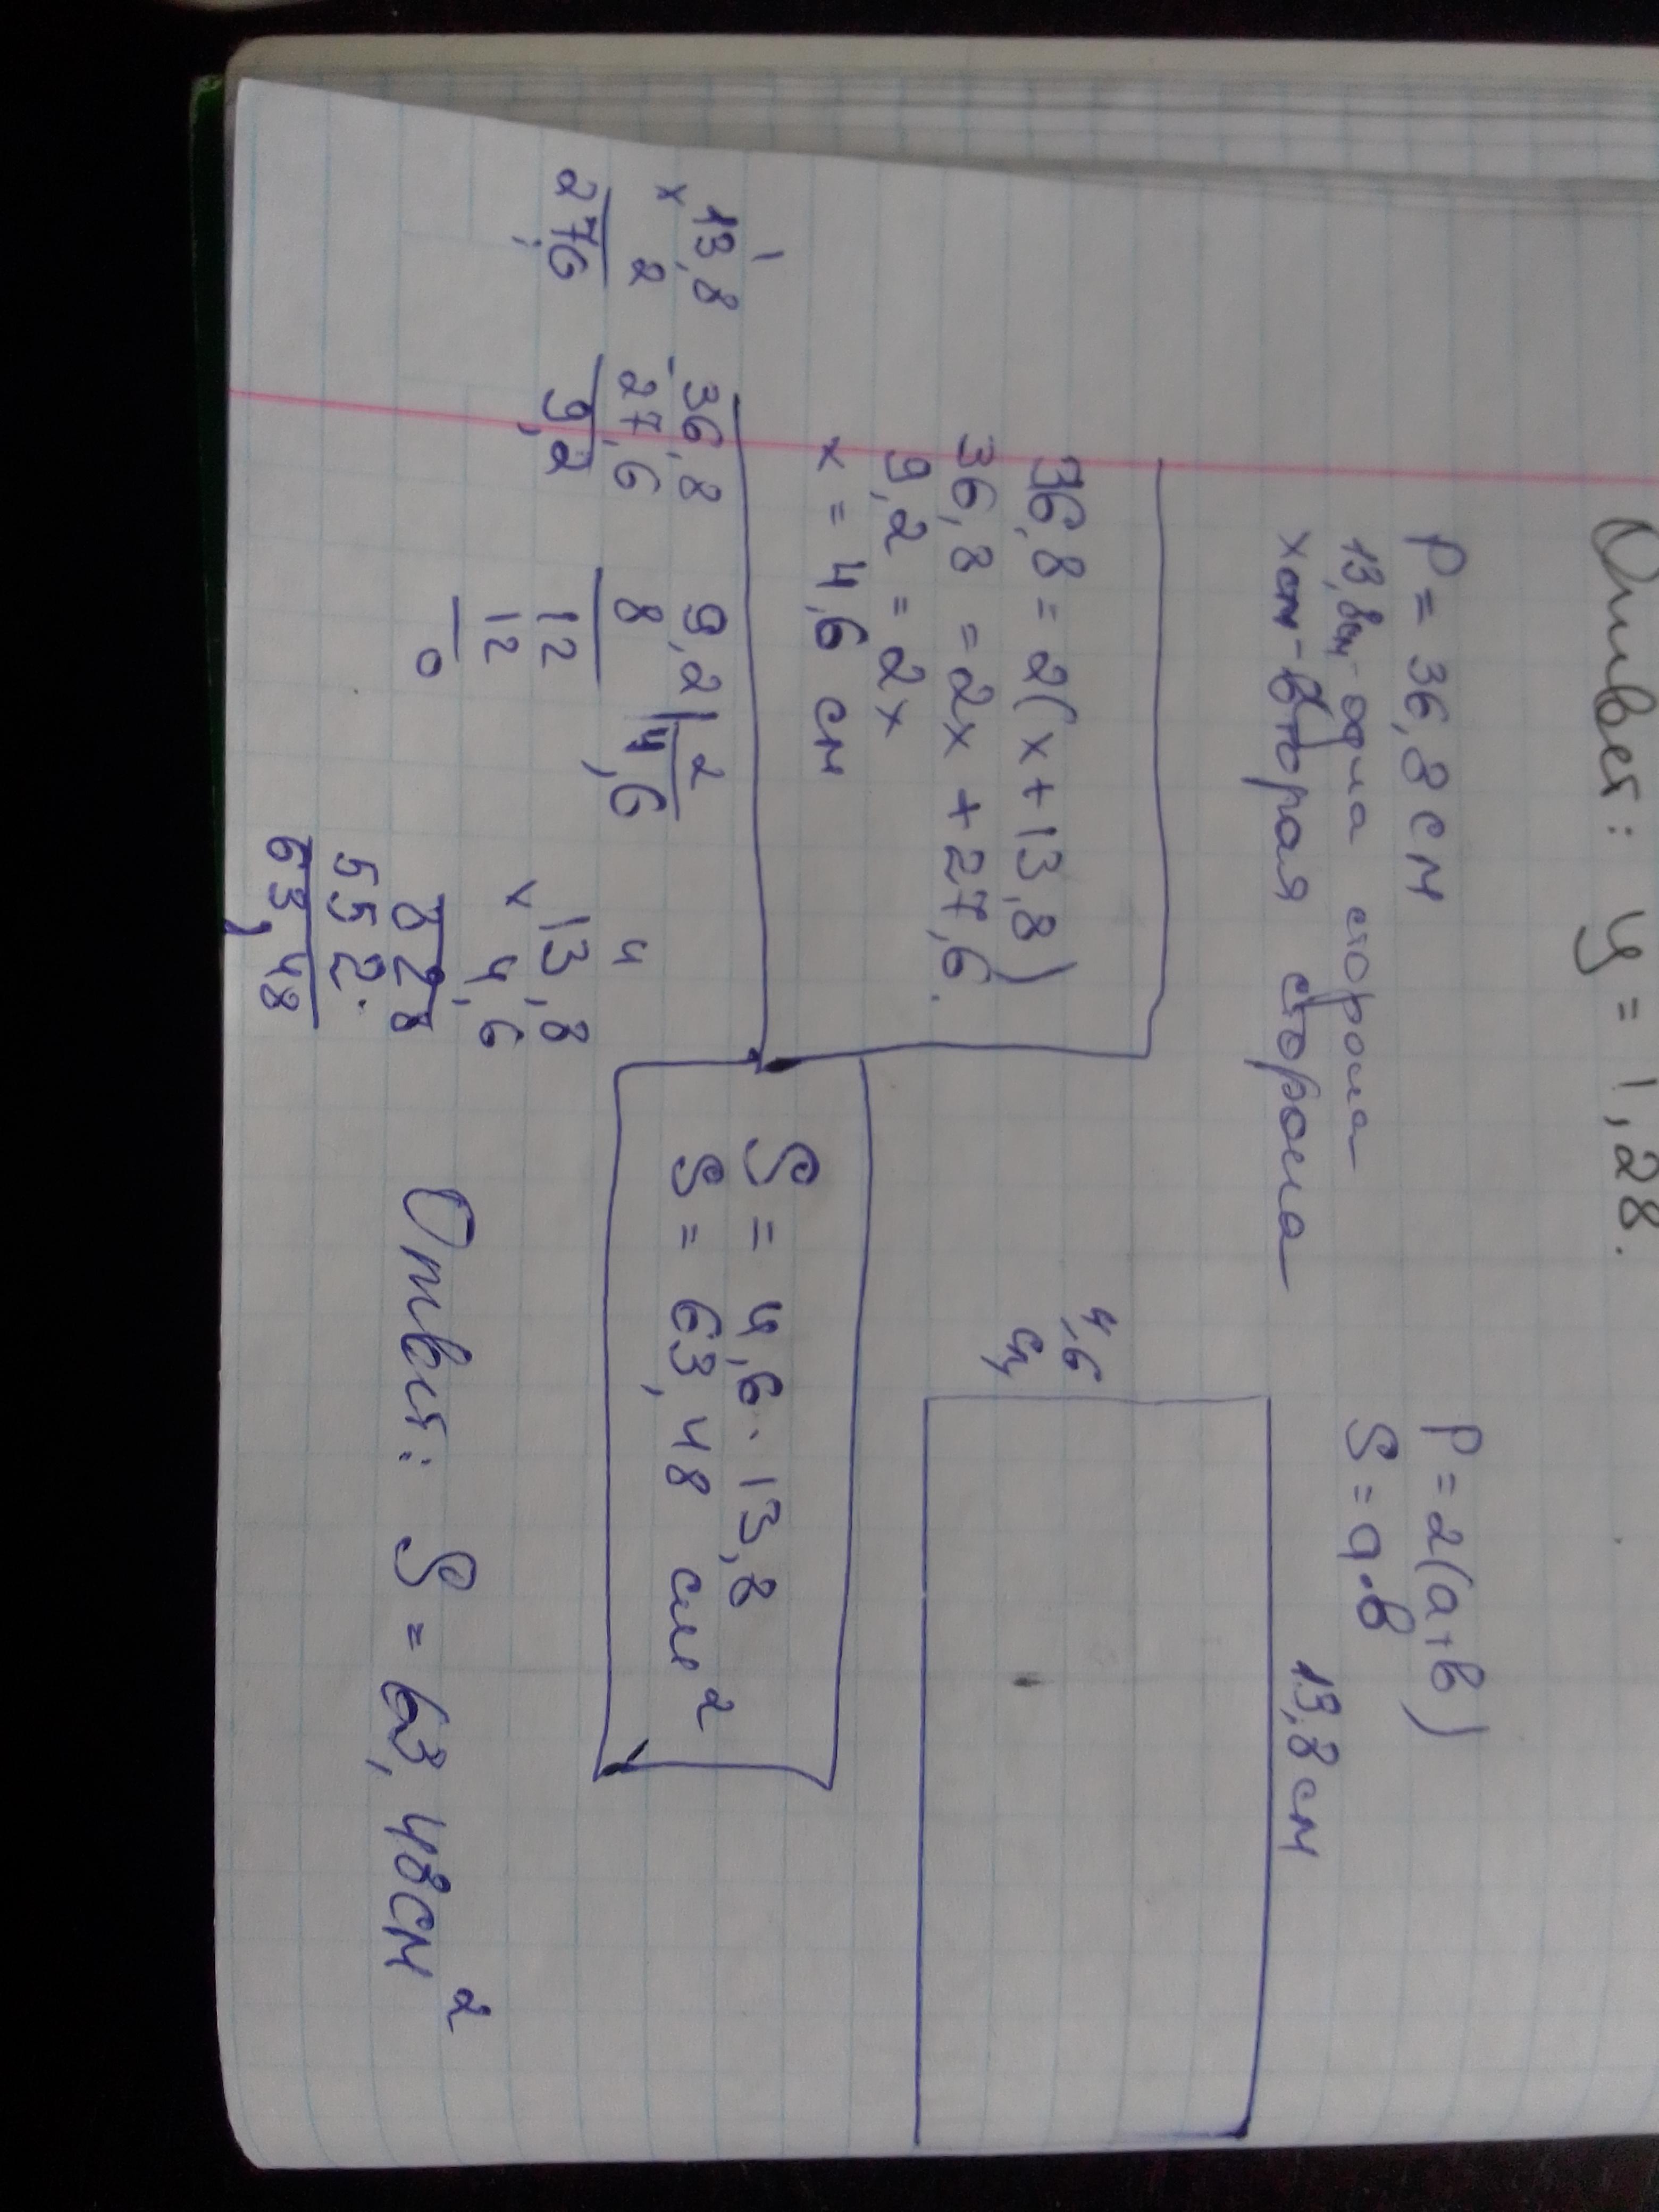 Ответ: y = 1,28.
P = 36,8 см
13,8см - одна сторона
x см - вторая сторона
P = 2(a+в)
S = a·в
13,8 см
4,6
см
36,8 = 2(x+13,8)
36,8 = 2x + 27,6.
9,2 = 2x
x = 4,6 см
S = 4,6 · 13,8
S = 63,48 см²
1
13,8
× 2
27,6
- 36,8
27,6
9,2
9,2 | 2
8 4,6
12
12
0
4
13,8
× 4,6
828
552.
63,48
Ответ: S = 63,48см²